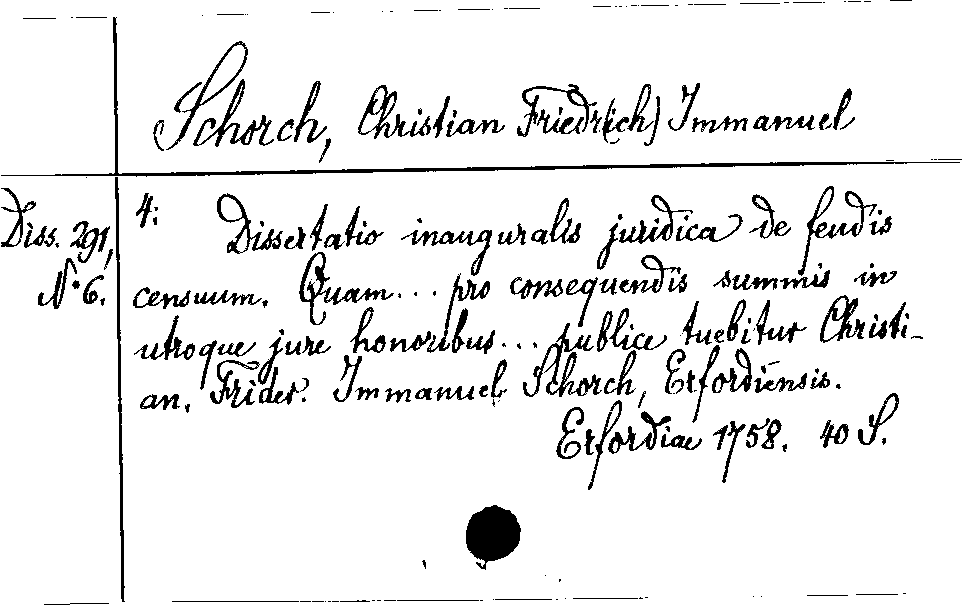 Schorch, Christian Friedr(ich) Immanuel
Diss. 291,
N° 6.
4: Dissertatio inauguralis juridica de feudis
censuum. Quam... pro consequendis summis in
utroque jure honoribus... publice tuebitur Christi-
an. Frider. Immanuel Schorch, Erfordiensis.
Erfordiae 1758. 40 S.